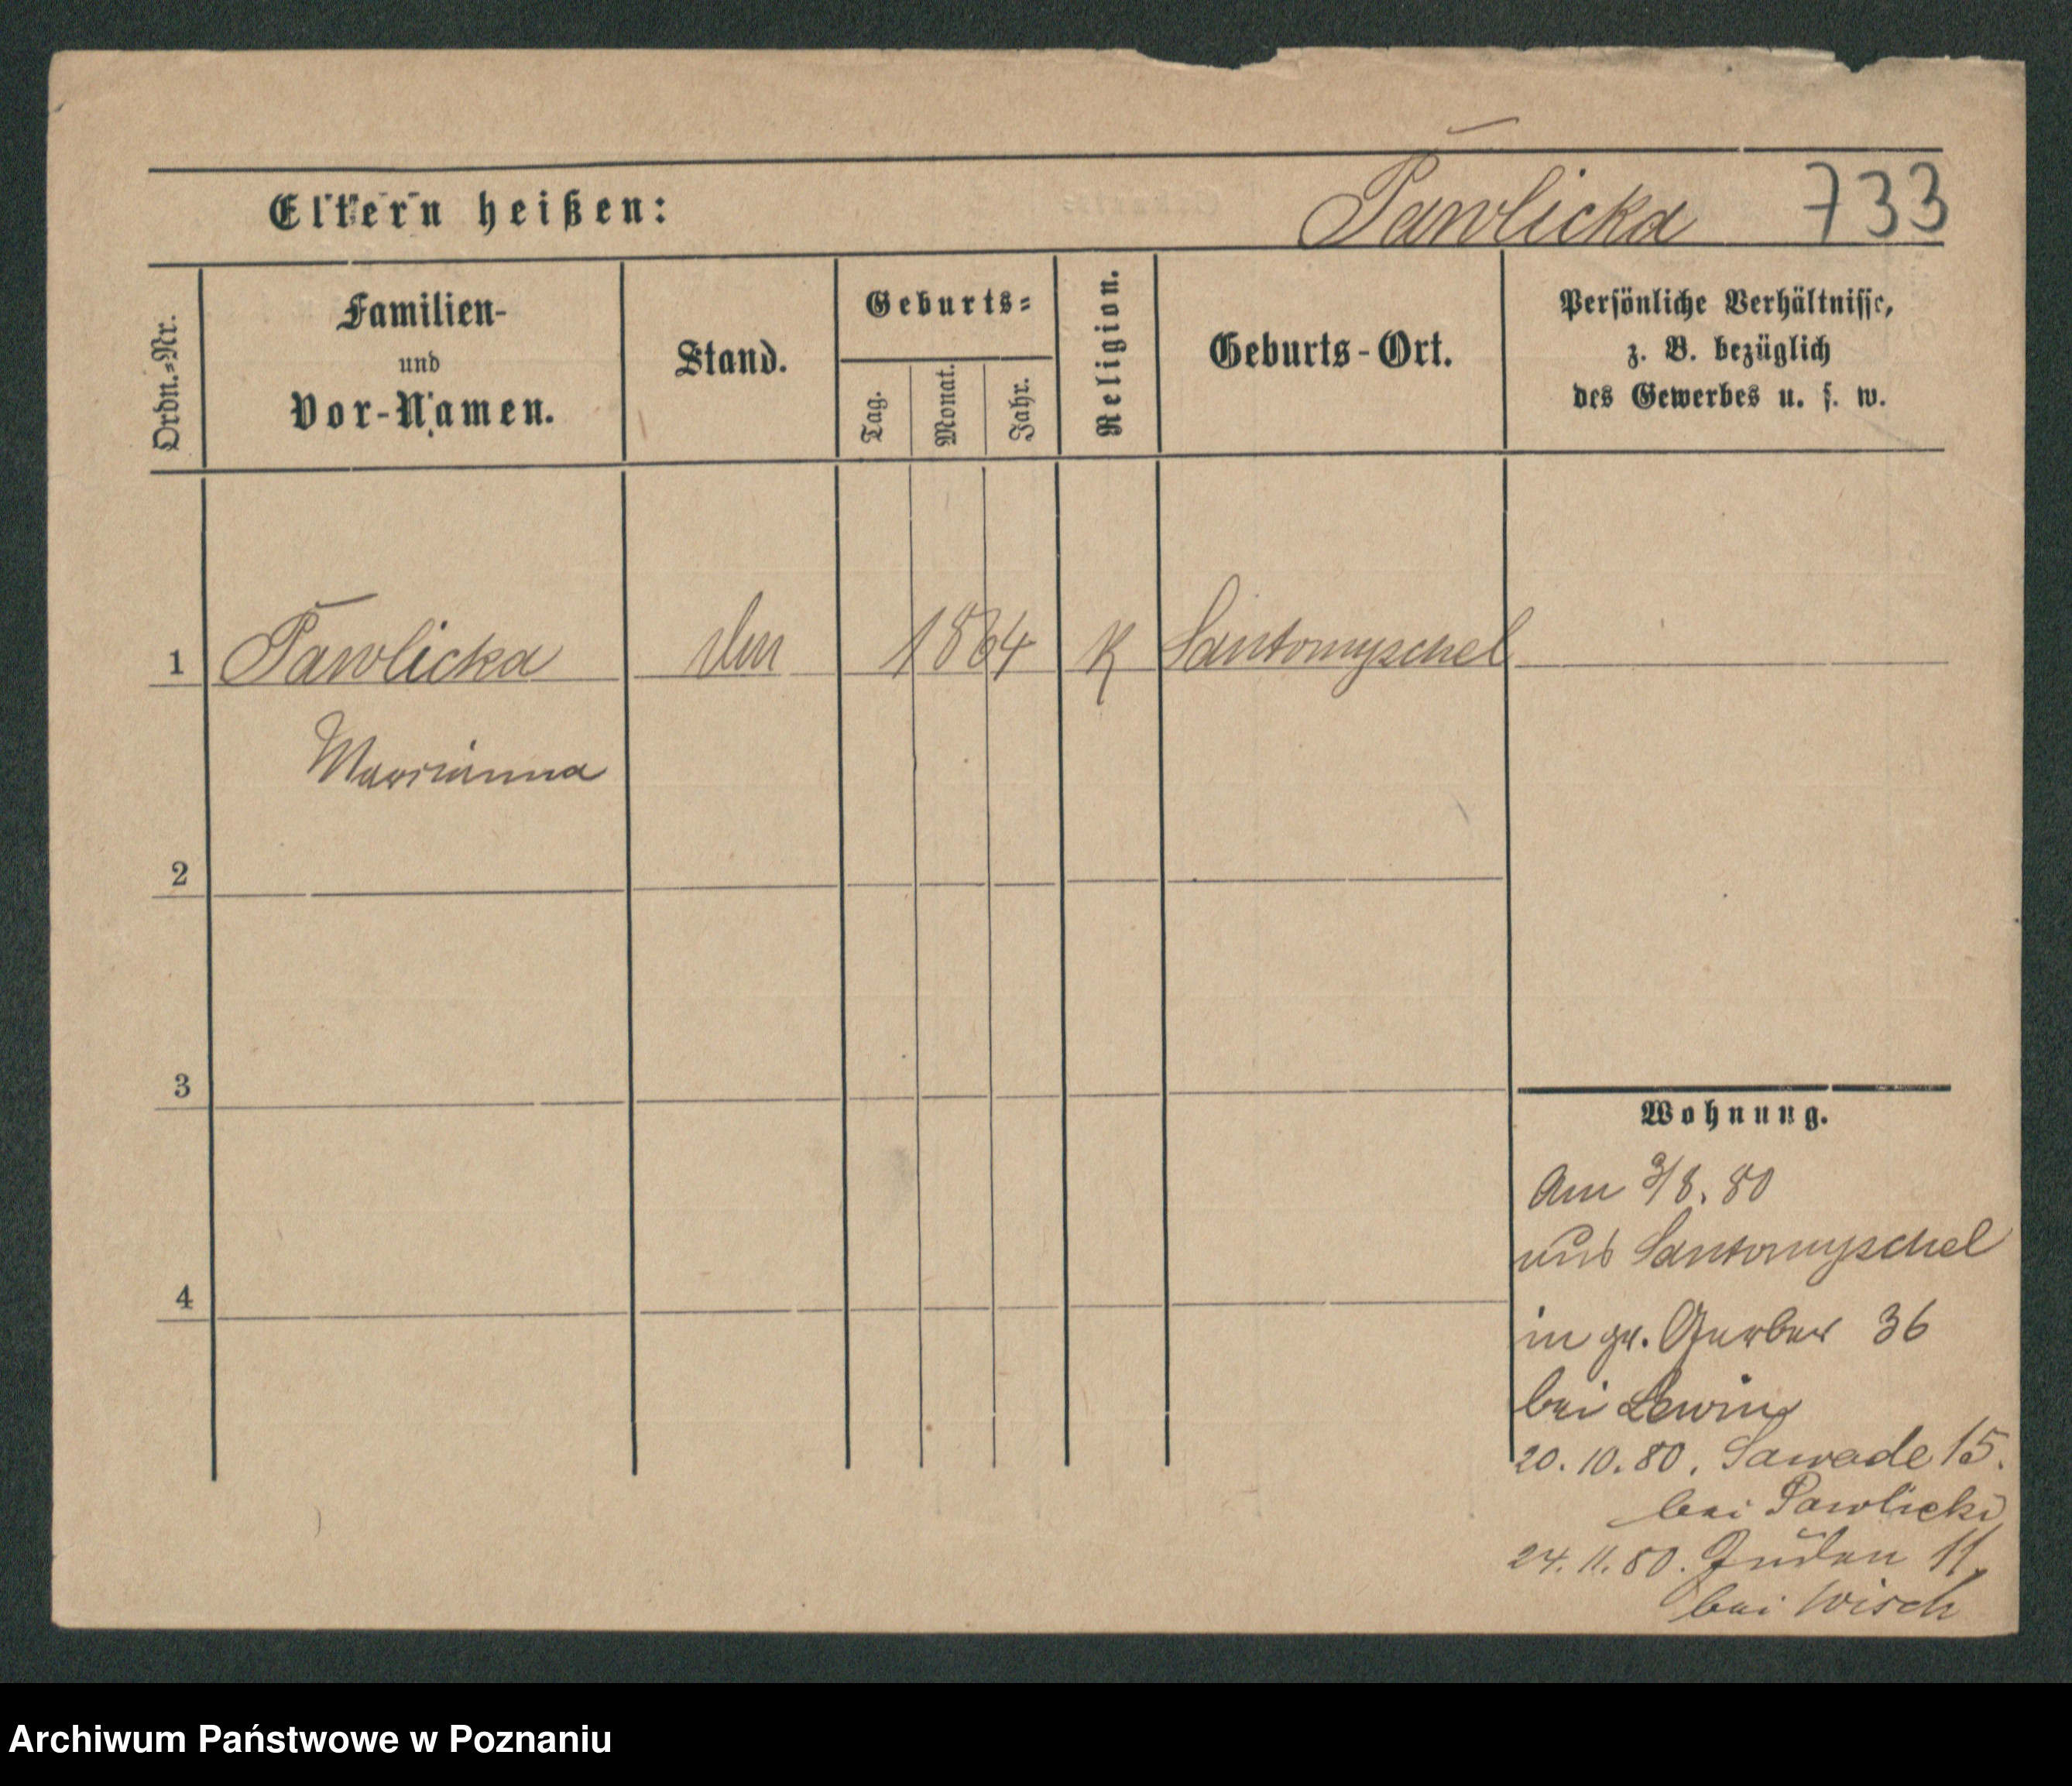 Eltern heißen: Pawlicka 733
Ordn.=Nr.
Familien-
und
Vor-Namen.
Stand.
Geburts=
Tag.
Monat.
Jahr.
Religion.
Geburts-Ort.
Persönliche Verhältnisse,
z. B. bezüglich
des Gewerbes u. s. w.
1 Pawlicka 1864 K Santomyschel
Marianna
2
3
4
Wohnung.
Am 3/8. 80
aus Santomyschel
in gr. Gerber 36
bei Lewin
20. 10. 80. Sawade 15.
bei Pawlicki
24. 11. 80. Juden 11.
bei Wisch
Archiwum Państwowe w Poznaniu